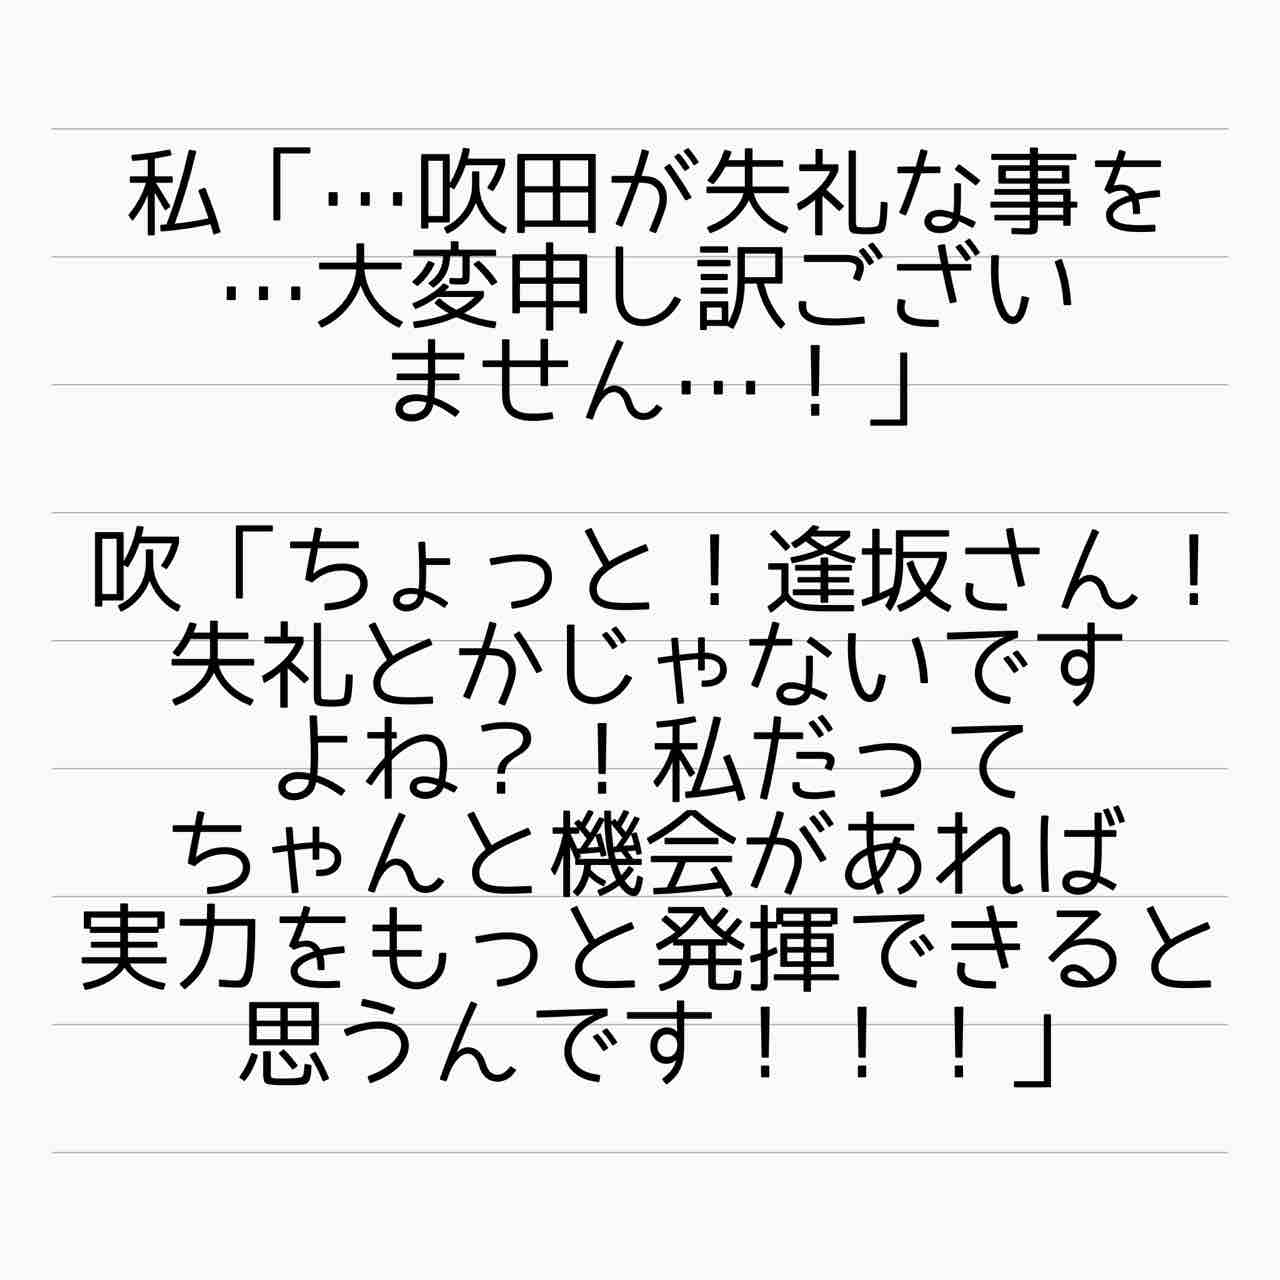 私「…吹田が失礼な事を
…大変申し訳ござい
ません…！」
吹「ちょっと！逢坂さん！
失礼とかじゃないです
よね？！私だって
ちゃんと機会があれば
実力をもっと発揮できると
思うんです！！！」